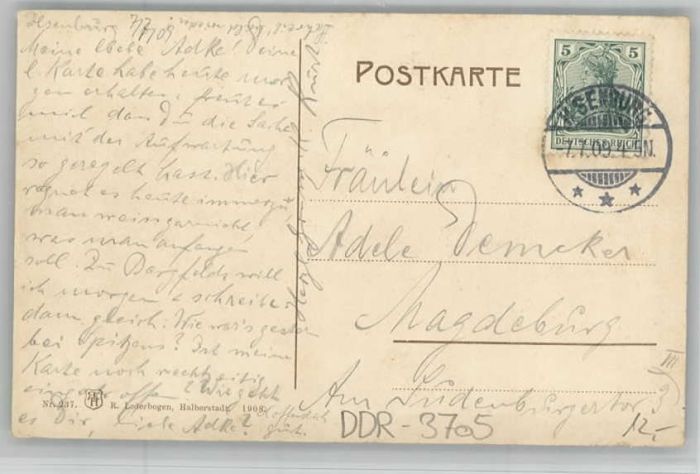 Ilsenburg 7/7 09
Meine liebe Adele! Deine
l. Karte habe heute mor-
gen erhalten, freut es
mich dass Du die Sache
mit der Aufwartung
so geregelt hast. Hier
regnet es heute immerzu
man weiss gar nicht
was man anfangen
soll. Zu will
ich morgen & schreibe
dann gleich. Wie war's gestern
bei Ist meine
Karte noch rechtzeitig
? Wie geht
es Dir, liebe Adele? Hoffentlich
gut.
Herzl. Kurt
POSTKARTE
5 5
DEUTSCHES REICH
ILSENBURG
7.7.09. 1-2N.
Fräulein
Adele Demcker
Magdeburg
Am Sudenburgertor 3
III
Nr. 237. R. Lederbogen, Halberstadt. 1908.
DDR-3705
12,-